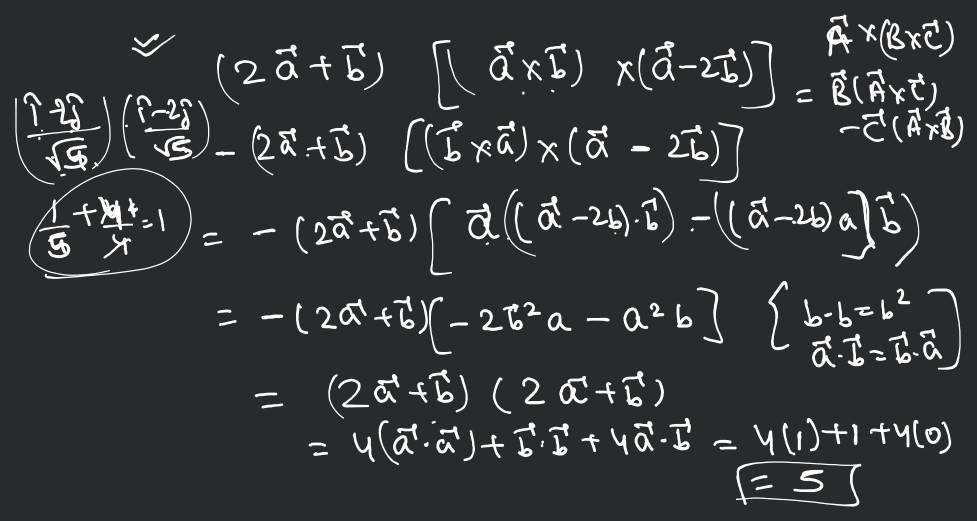 (2a⃗ + b⃗) [(a⃗ × b⃗) × (a⃗ − 2b⃗)]
A⃗ × (B × C⃗)
= B⃗(A⃗ × C⃗)
− C⃗(A⃗ × B⃗)
(î − 2ĵ / √5) (î − 2ĵ / √5)
− (2a⃗ + b⃗) [(b⃗ × a⃗) × (a⃗ − 2b⃗)]
1/5 + = 1
= − (2a⃗ + b⃗) [a⃗((a⃗ − 2b)·b⃗) − ((a⃗ − 2b)a]b⃗)
= − (2a⃗ + b⃗)[− 2b⃗²a − a²b] {b·b = b²
a⃗·b⃗ = b⃗·a⃗]
= (2a⃗ + b⃗) (2a⃗ + b⃗)
= 4(a⃗·a⃗) + b⃗·b⃗ + 4a⃗·b⃗ = 4(1) + 1 + 4(0)
= 5